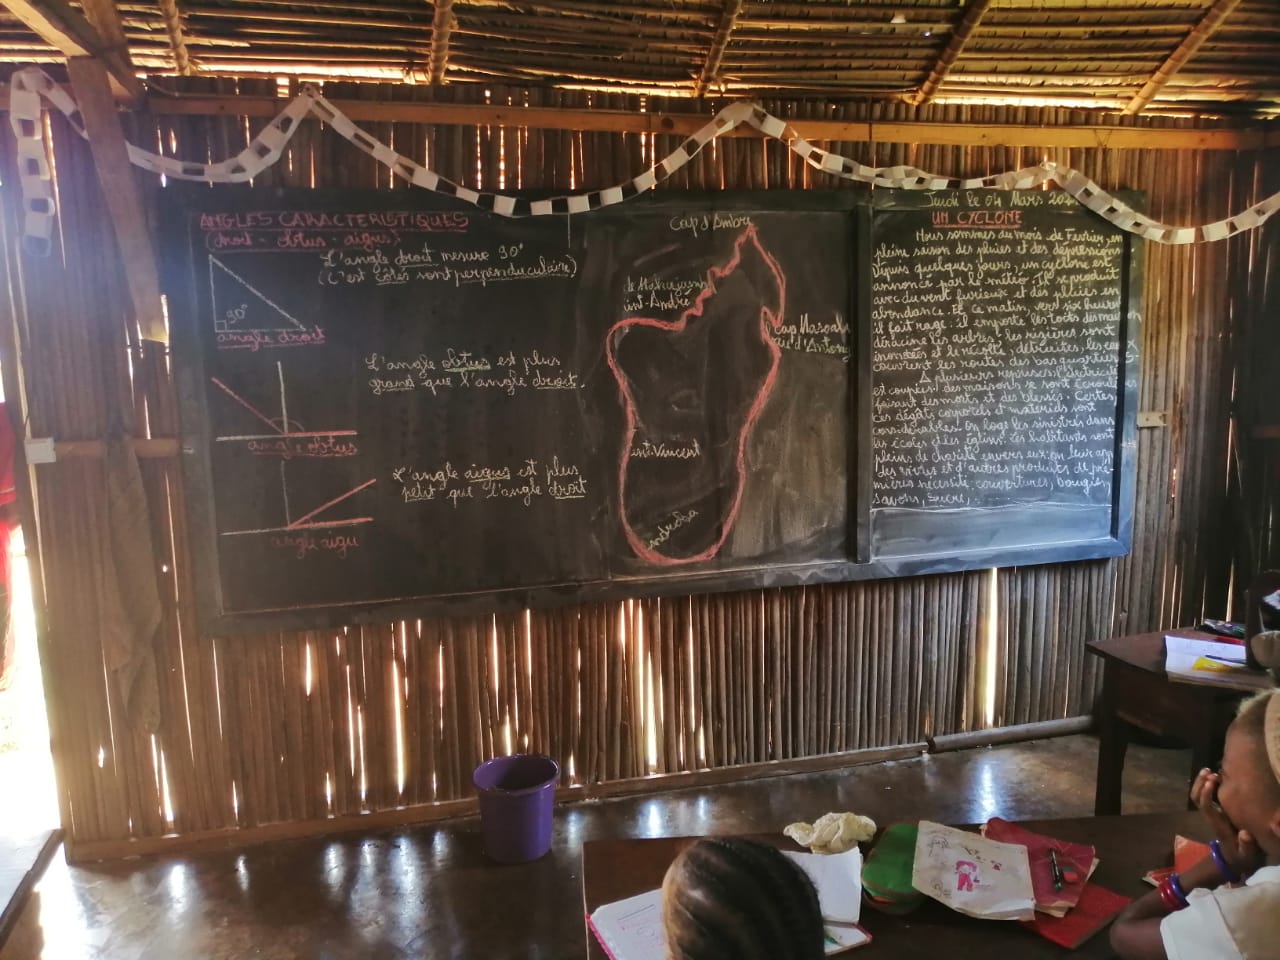 ANGLES CARACTERISTIQUES
(droit - obtus - aigus)
L'angle droit mesure 90°
(C'est côtés sont perpenduculaire)
90°
angle droit
L'angle obtus est plus
grand que l'angle droit.
angle obtus
L'angle aigus est plus
petit que l'angle droit
angle aigu
Cap d'Ambre
int-André
Cap Masoala
d'Anton
int-Vincent
Jeudi le 04 Mars
UN CYCLONE
Nous sommes au mois de Fevrier, en
pleine saison des pluies et des dépressions
Depuis quelques jours, un cyclone est
annoncé par le météo. Il se produit
avec du vent furieux et des pluies en
abondance. Et ce matin vers six heures
il fait rage: il emporte les toits des maison
déracine les arbres; les rizières sont
inondées et la récolte, détruites, les eau
couvrent les routes des bas quartiers.
A plusieurs reprises l'électricité
est coupées des maisons se sont écroul
faisant des morts et des blessés. Certes,
ces dégâts corporels et materiels sont
considérables. On loge les sinistrés dans
les écoles et les églises. Les habitants sont
pleins de charité envers eux; on leur app
des vivres et d'autres produits de pre-
mières necésité: couvertures, bougies,
savons, sucre,